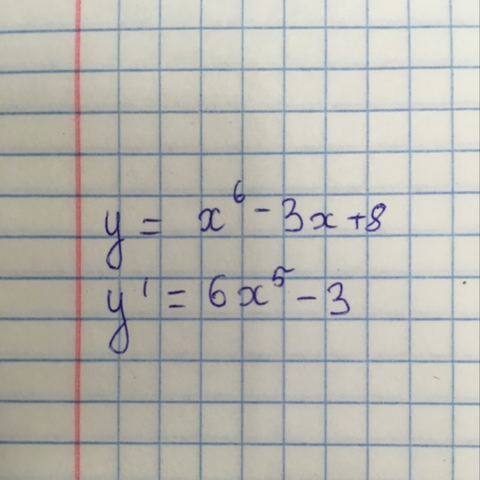 y = x⁶ - 3x + 8
y' = 6x⁵ - 3